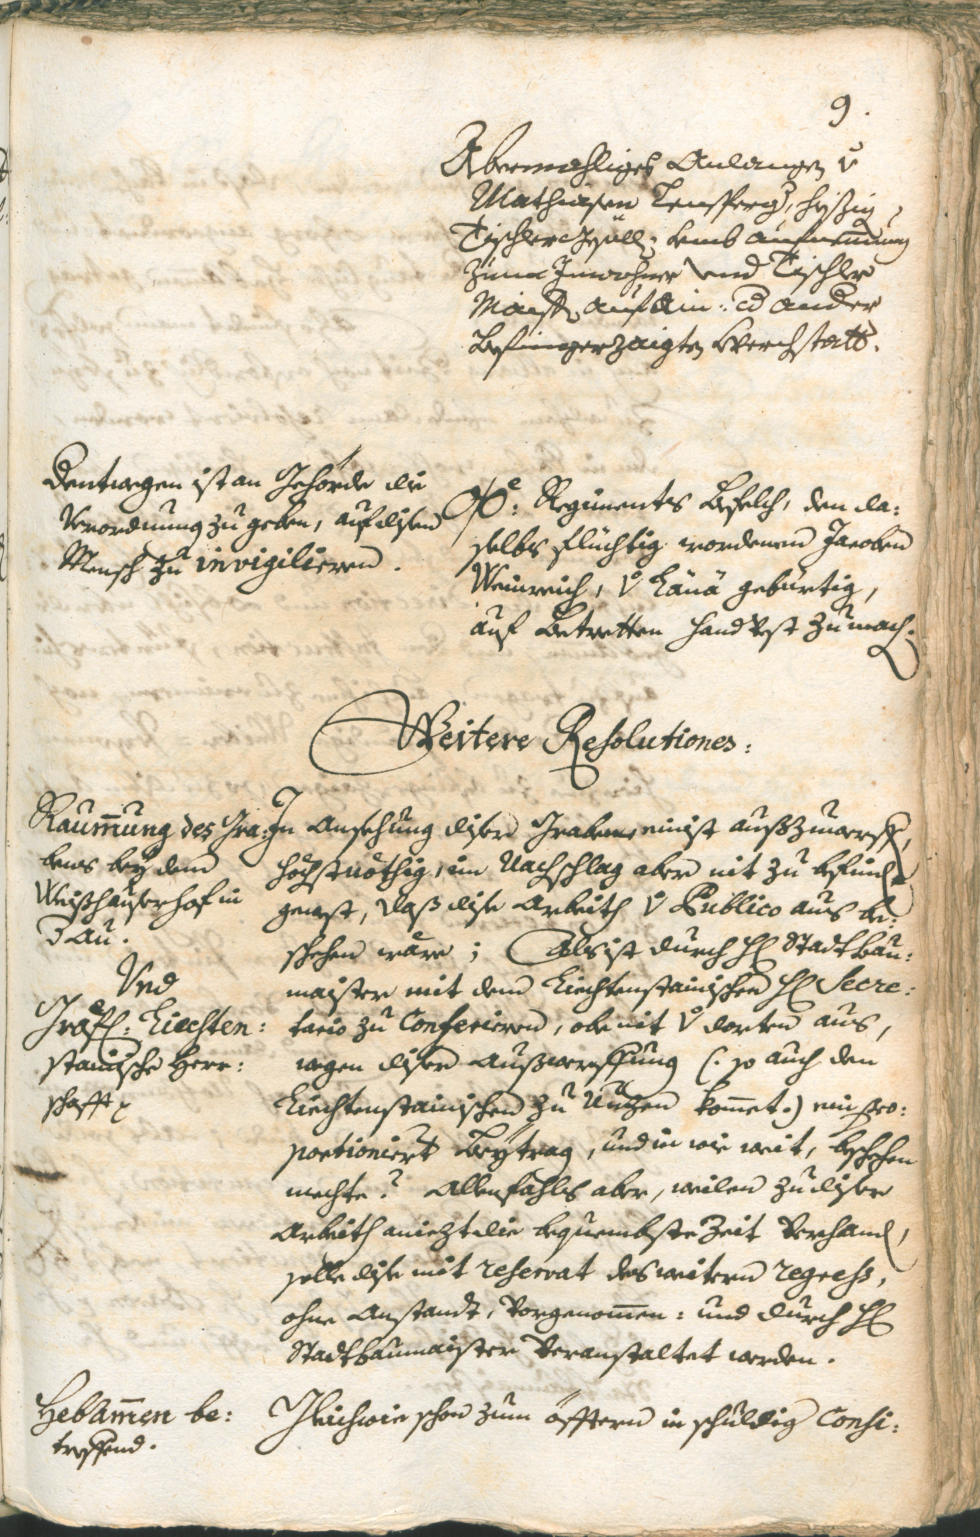 9.
Abermahliges Anlangen v
Mathiasen hissig
Tischler Gsöll: umb aufnemmung
zum Inwohner vnd Tischler
Maister auf ain: od ander
Werchstatt.
Dentwegen ist an Gehörde die
Verordnung zu geben, auf disen
Mensch zu invigilieren.
OÖ: Regiments Befelch, den da:
selbs flüchtig wordenen Jacoben
Weinreich, v Länä gebürtig,
auf Betretten handvest zumach:
Weitere Resolutiones:
Raum̄ung des Gra:
bens bey dem
Weißhauserhof in
d Au.
Vnd
Gräfl: Liechten:
stainische Herr:
schafft
In Ansehung diser Graben einist außzuwerffen,
höchstnöthig, im Nachschlag aber nit zu befind
gewest, daß dise Arbeith v Publico aus be:
schehen wäre; Als ist durch H Stadtbau:
maister mit dem Liechtenstainischen H Secre:
tario zu Conferieren, ob nit v dorten aus,
wegen diser Außwerffung (: so auch den
Liechtenstainischen zu Nutzen kom̄et:) ein pro:
portioniert Beytrag, und in wie weit, beschehen
mechte? Allenfahls aber, weilen zu diser
Arbeith aniezt die bequembste Zeit Verhand,
solle dise mit reservat des weitern regress,
ohne Anstandt, Vorgenom̄en: und durch H
Stadtbaumaister Veranstaltet werden.
Hebam̄en be:
treffend.
Gleichwie schon zum öfftern in schuldig Consi: